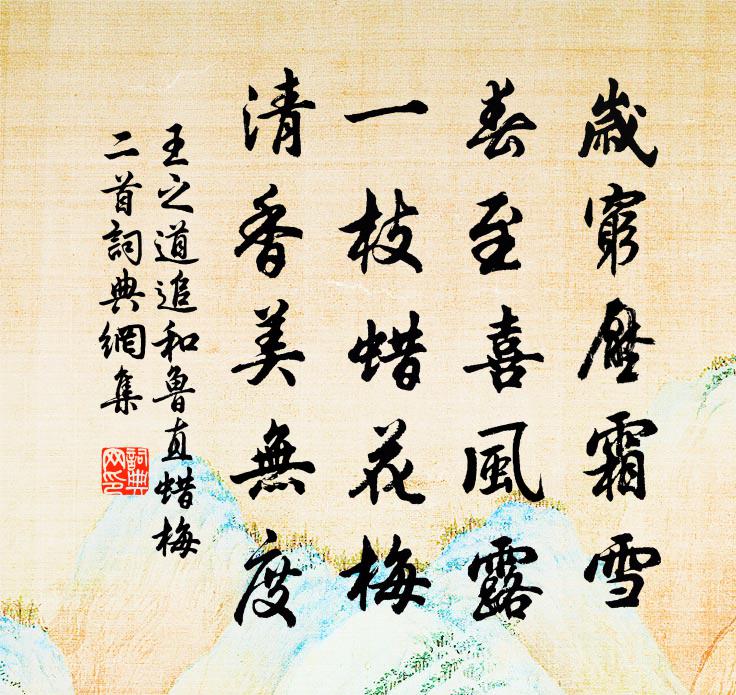 歲窮厭霜雪
春至喜風露
一枝蜡花梅
清香美無度
王之道追和魯直蜡梅
二首詞典網集
詞典
网印